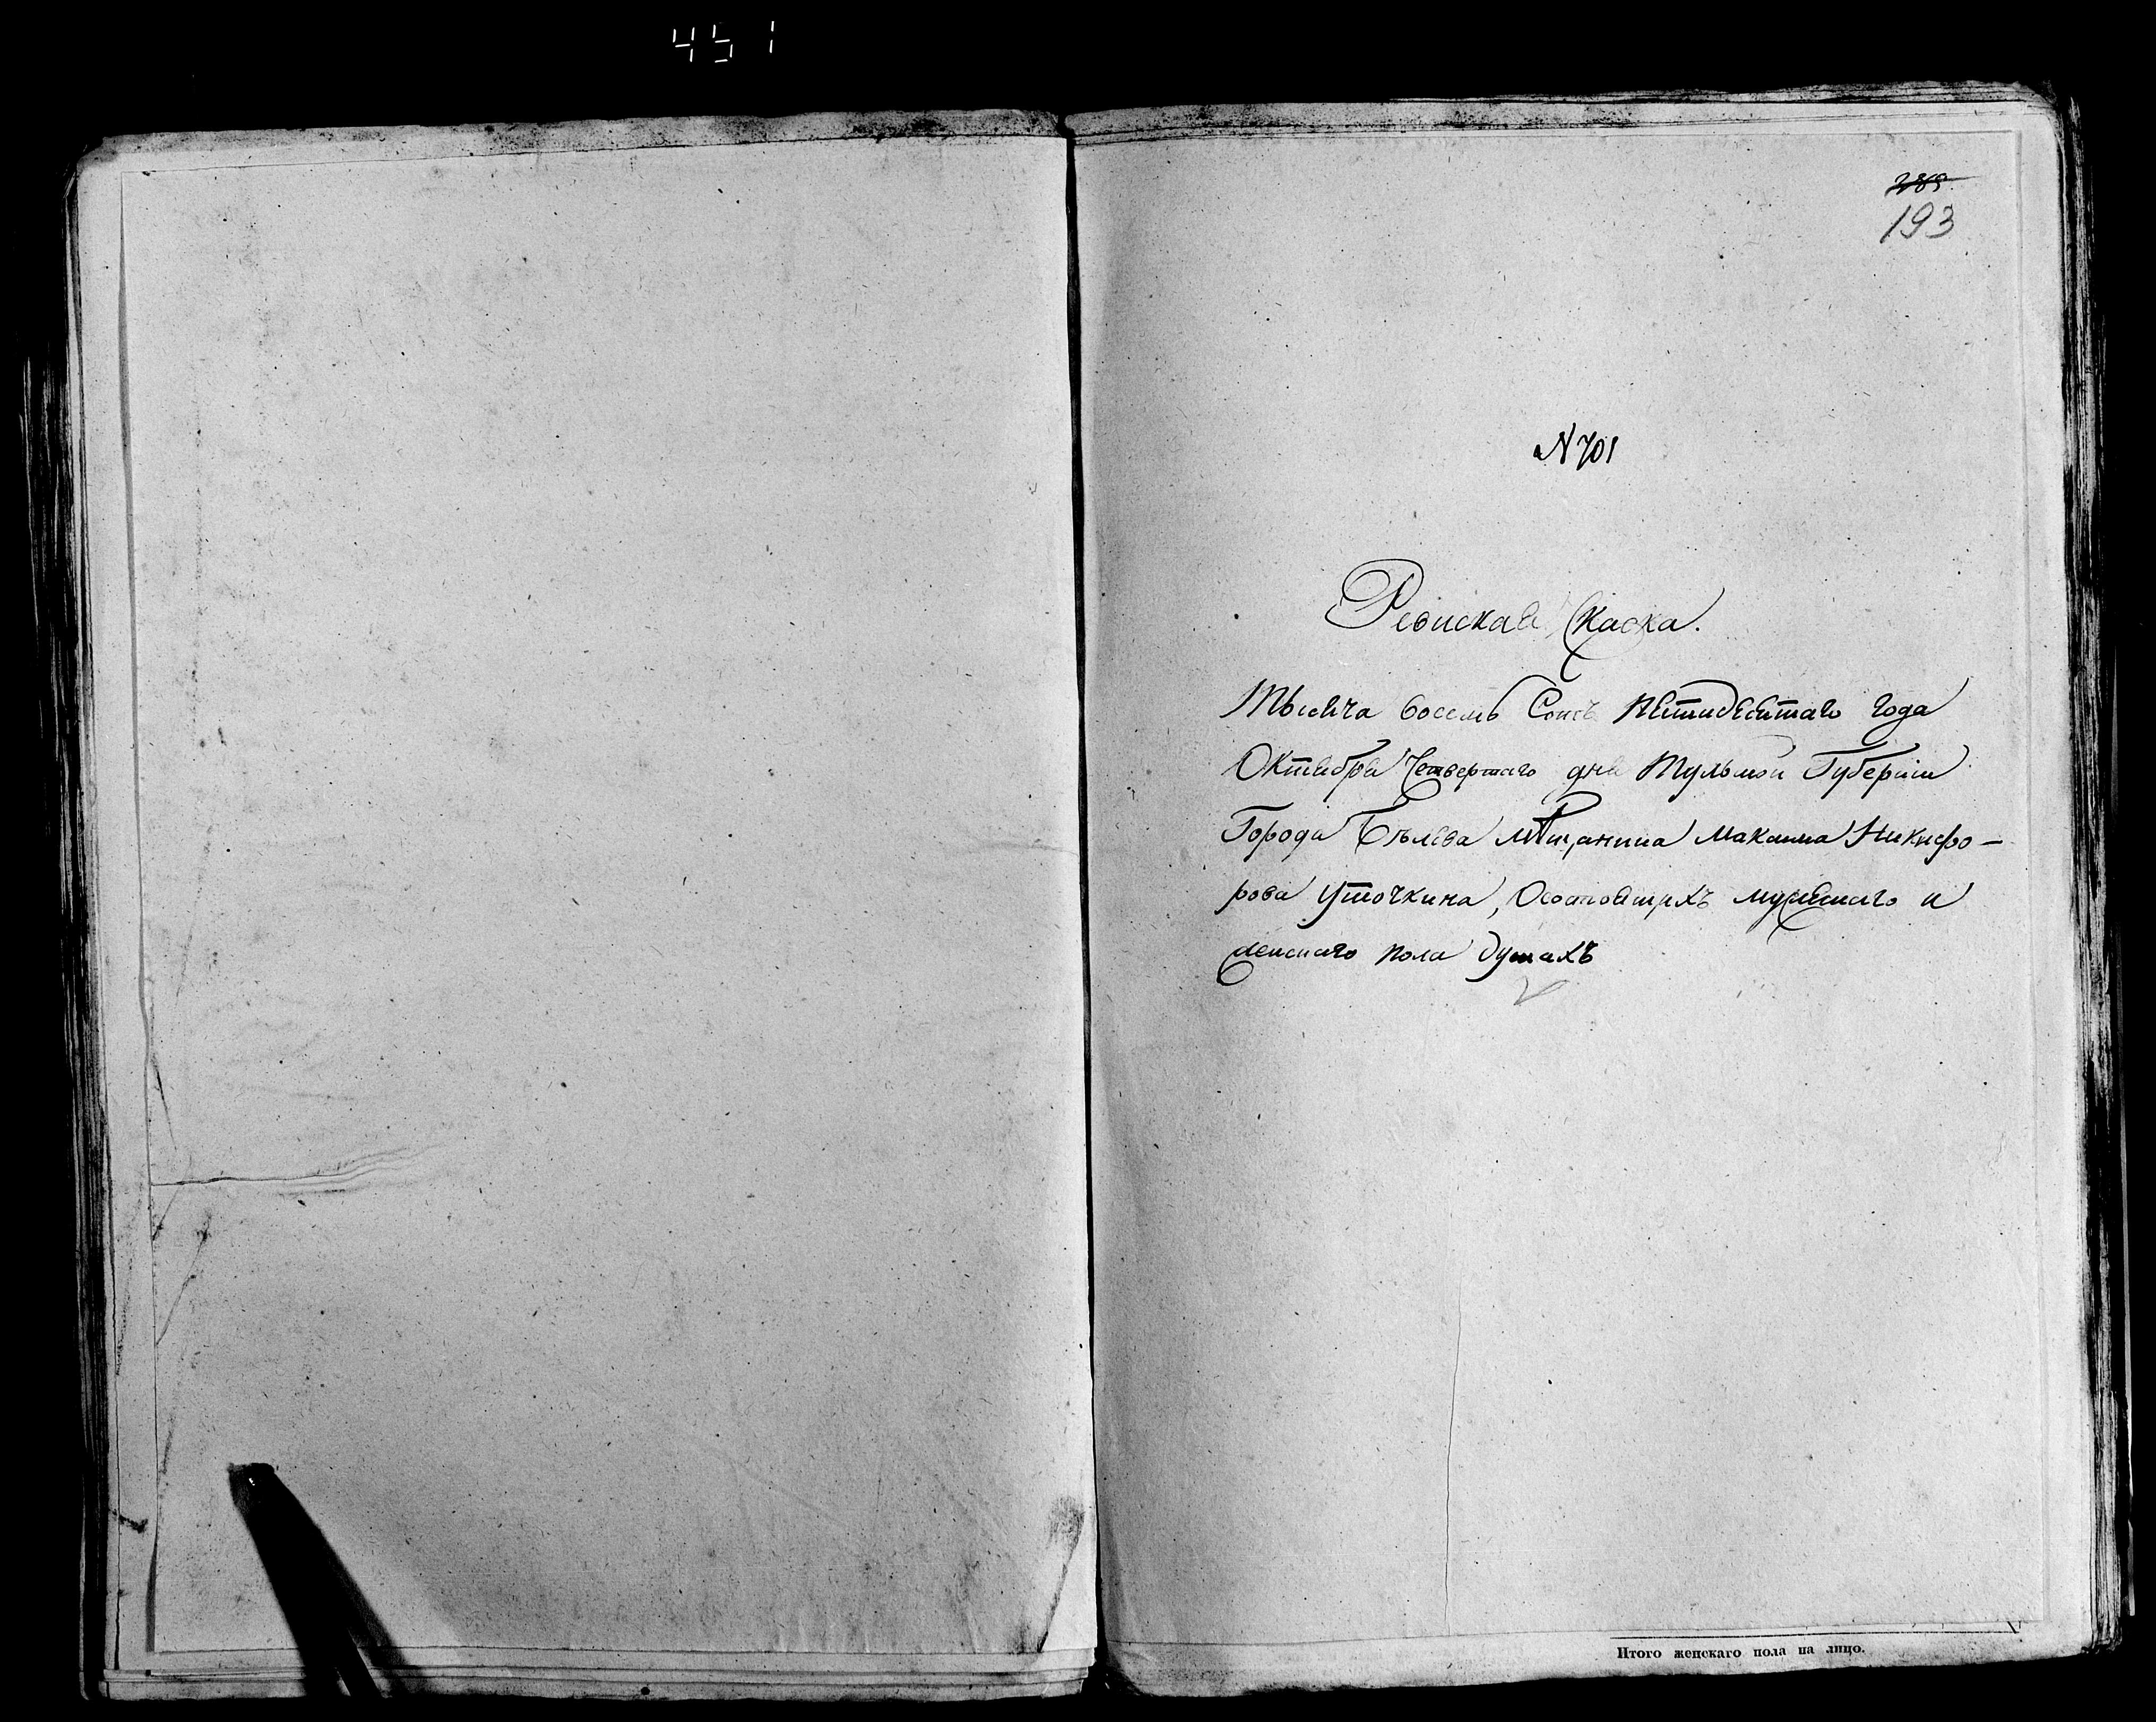 451
193
N 701
Ревиская Скаска.
Тысяча восемь Сотъ пятидесятаго года
Октября Четвертаго дня Тульской Губернии
Города Бѣлева мѣщанина Макаима Никифо-
рова Уточкина, Осостоящихъ мужескаго и
женскаго пола душахъ
Итого женскаго пола на лицо.